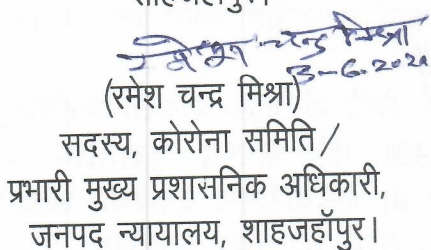 रमेश चन्द्र मिश्रा
3-6-2020
(रमेश चन्द्र मिश्रा)
सदस्य, कोरोना समिति /
प्रभारी मुख्य प्रशासनिक अधिकारी,
जनपद न्यायालय, शाहजहॉपुर।